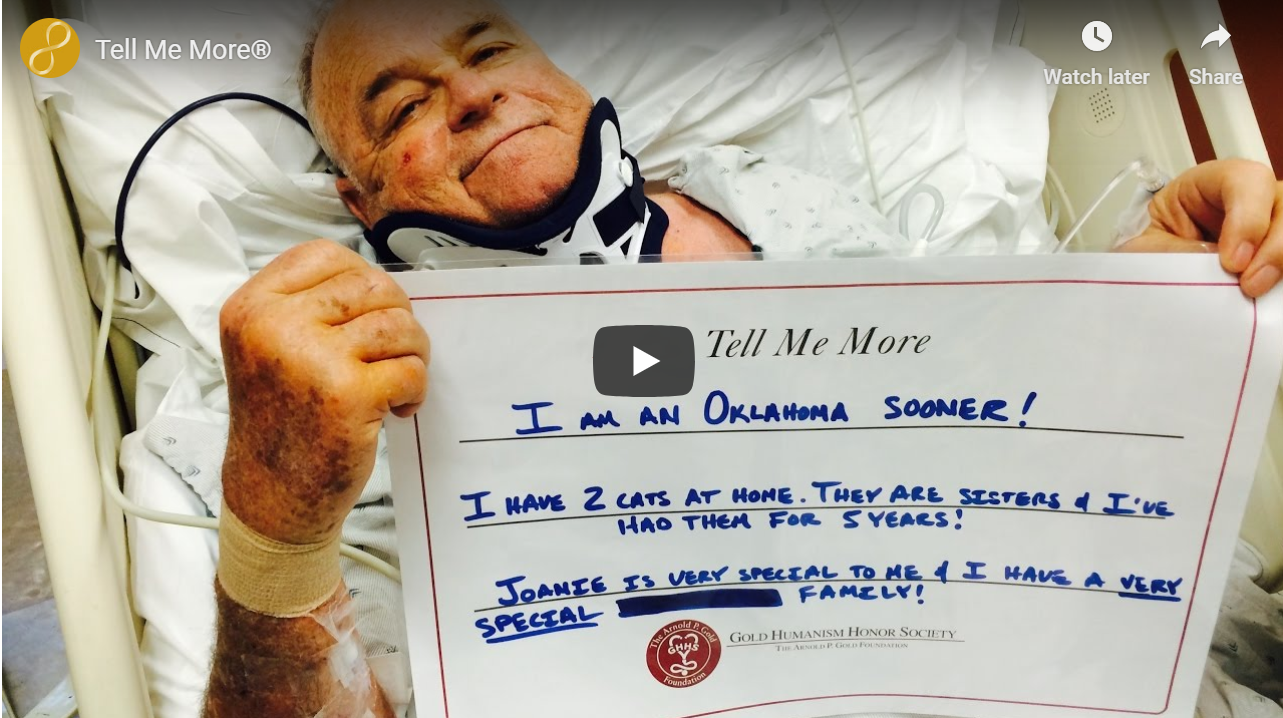 Tell Me More®
Watch later
Share
Tell Me More
I AM AN OKLAHOMA SOONER!
I HAVE 2 CATS AT HOME. THEY ARE SISTERS & I'VE
HAD THEM FOR 5 YEARS!
JOANIE IS VERY SPECIAL TO ME & I HAVE A VERY
SPECIAL FAMILY!
The Arnold P. Gold
GHHS
Foundation
GOLD HUMANISM HONOR SOCIETY
THE ARNOLD P. GOLD FOUNDATION